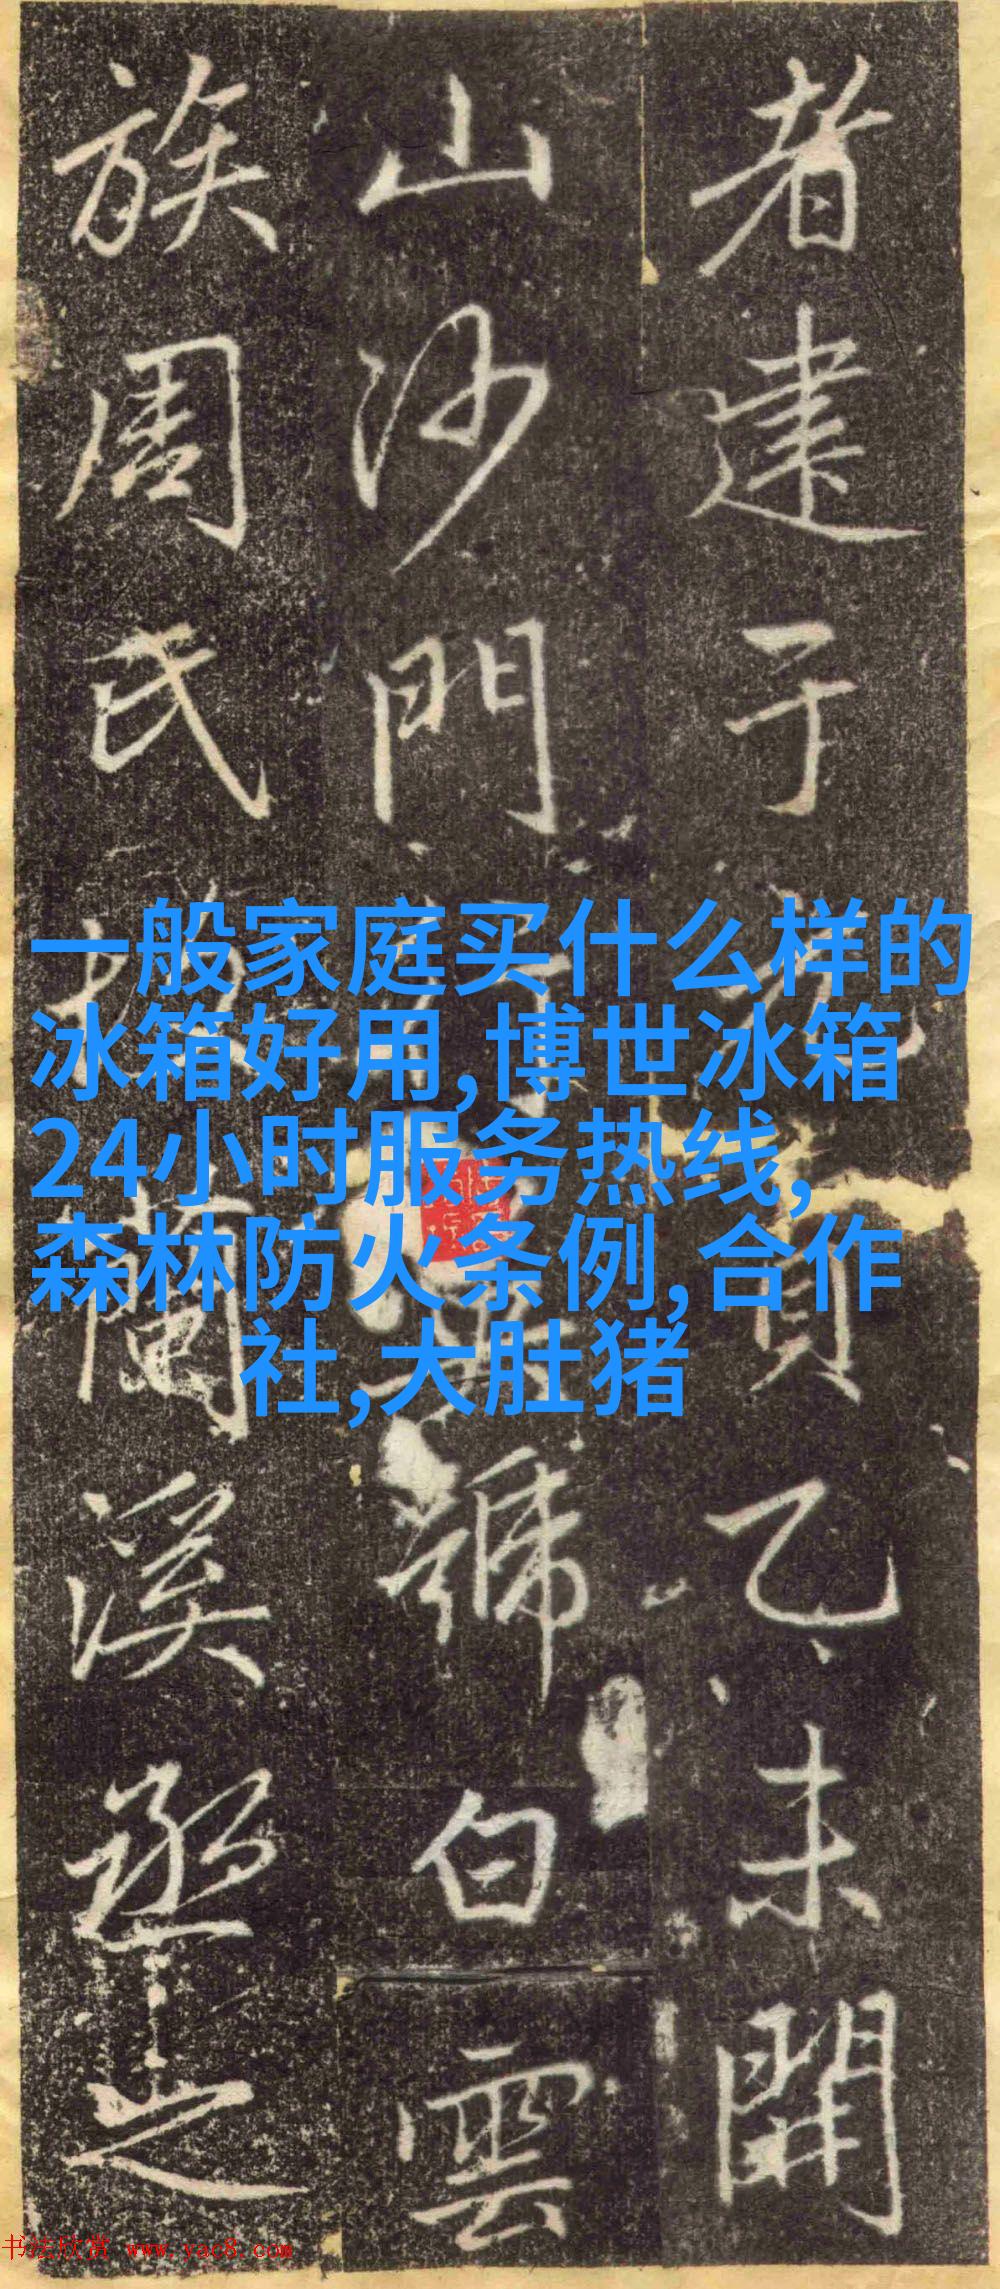 者建于
貞乙未開
山沙門
號白雲
族周氏
蘭溪丞之
一般家庭买什么样的
冰箱好用,博世冰箱
24小时服务热线,
森林防火条例,合作
社,大肚猪
书法欣赏 www.yac8.com